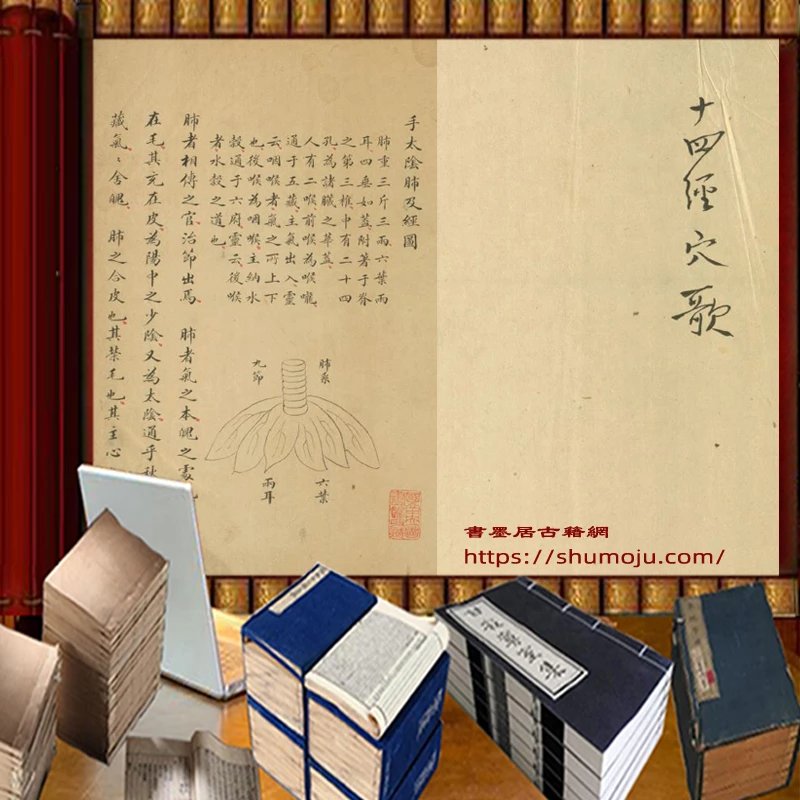 十四經穴歌
手太陰肺及經圖
肺重三斤三兩六葉兩
耳四垂如蓋附著于脊
之第三椎中有二十四
孔為諸臟之華蓋
人有二喉前喉為喉嚨
通于五藏主氣出入靈
云咽喉者氣之所上下
也後喉為咽喉主納水
穀通于六府靈云後喉
者水穀之道也
肺系
九節
六葉
兩耳
肺者相傳之官治節出焉 肺者氣之本魄之處
在毛其充在皮為陽中之少陰又為太陰通乎秋
藏氣〻舍魄 肺之合皮也其榮毛也其主心
書墨居古籍網
https://shumoju.com/